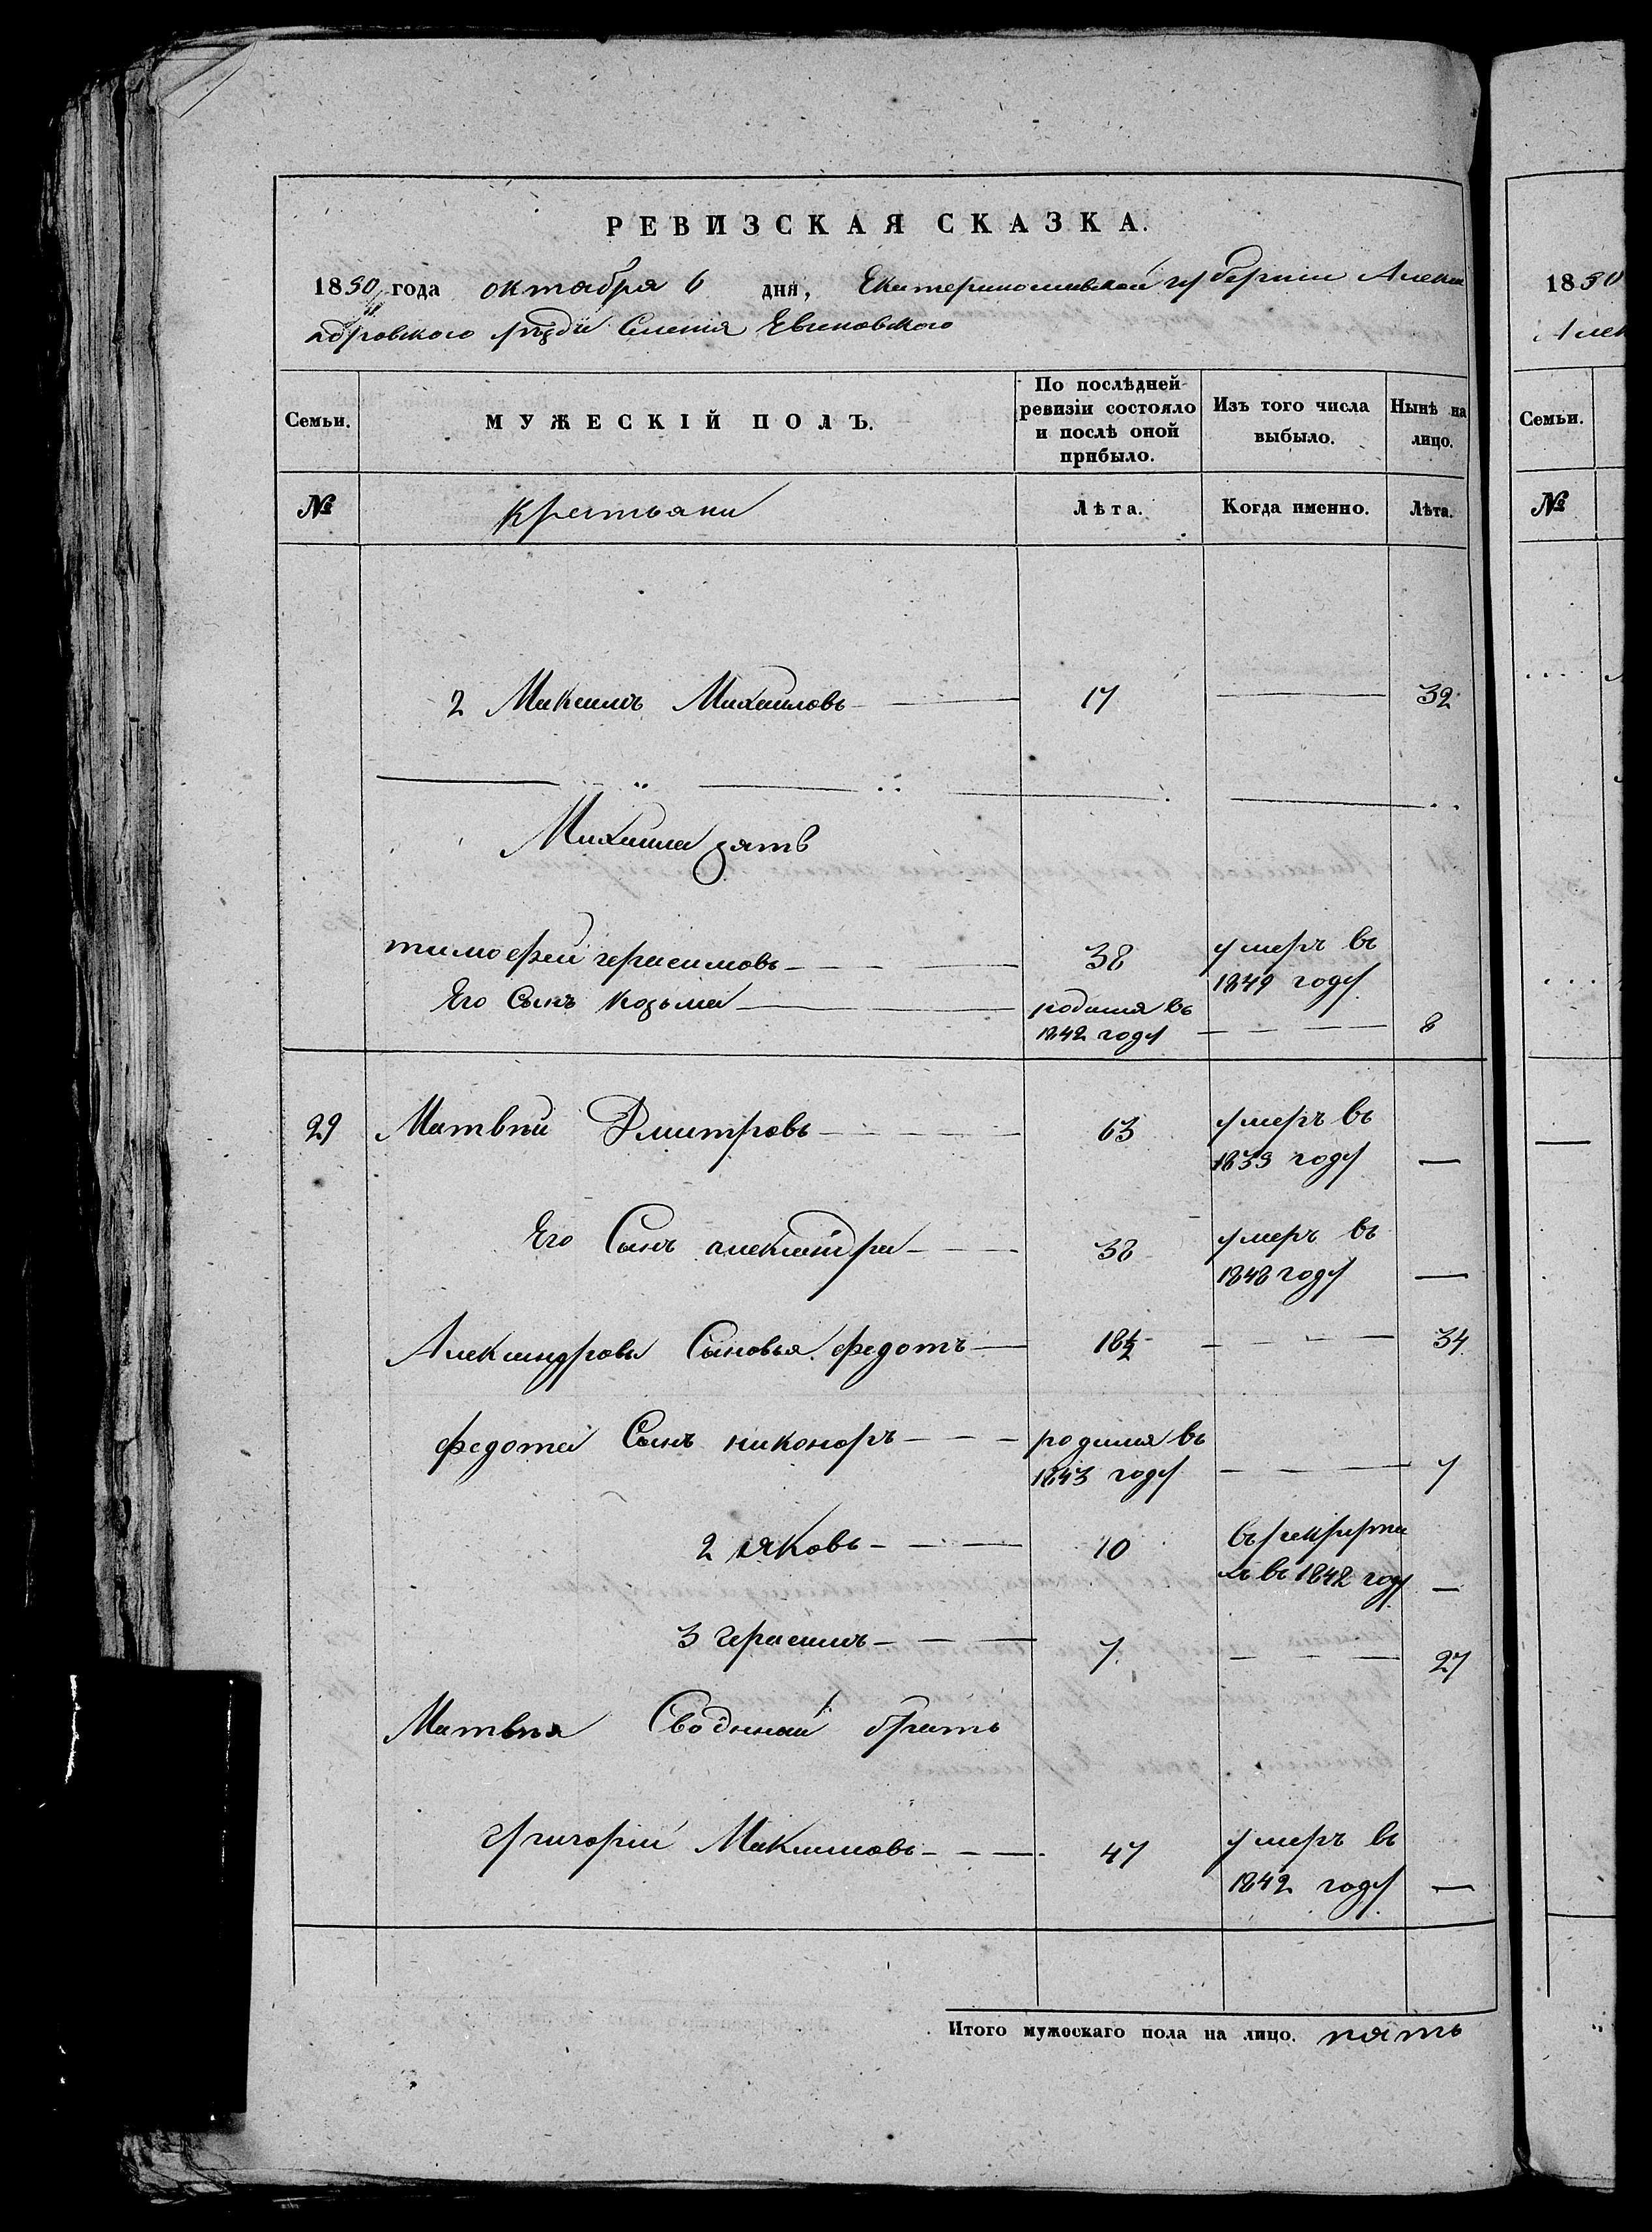 РЕВИЗСКАЯ СКАЗКА.
1850 года октября 6 дня, Екатеринославской губернии Алексан
ндровского уезда Селения Евсеновского
Семьи. МУЖЕСКІЙ ПОЛЪ. По послѣдней ревизіи состояло и послѣ оной прибыло. Изъ того числа выбыло. Нынѣ на лицо.
№ крестьяни Лѣта. Когда именно. Лѣта.
2 Максимъ Михаиловъ 17 32
Михаила зять
тимофей герасимовъ 38 умеръ въ 1849 году
Его Сынъ козьма родился въ 1842 году 8
29 Матвѣй Дмитровъ 63 умеръ въ 1839 году
Его Сынъ александра 38 умеръ въ 1848 году
Александровы Сыновья федотъ 18½ 34
федота Сынъ никоноръ родился въ 1843 году 7
2 яковъ 10 въ рекрута хъ въ 1842 году
3 герасимъ 7. 27
Матвѣя Сводный братъ
григорій Максимовъ 47 умеръ въ 1842 году
Итого мужескаго пола на лицо. пять
1850
Алек
Семьи.
№